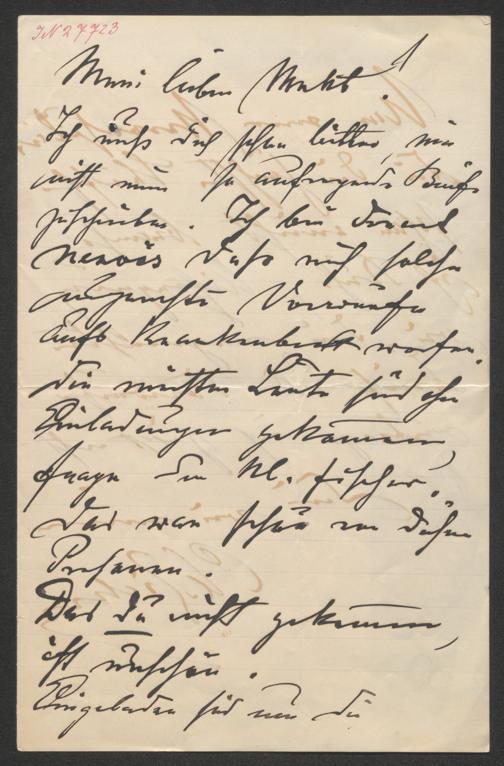 IN 27723
Mein lieber
Ich muß Dich schon bitten, mir
nicht mehr so aufregende Briefe
zu schreiben. Ich bin derart
nervös daß mich solche
ungerechte Vorwürfe
aufs Krankenbett werfen.
Die meisten Leute sind ohne
Einladungen gekommen,
frage den Kl. Fischer.
Das war schon von
Personen.
Daß Du nicht gekommen,
ist unschön.
Eingeladen sind nur die